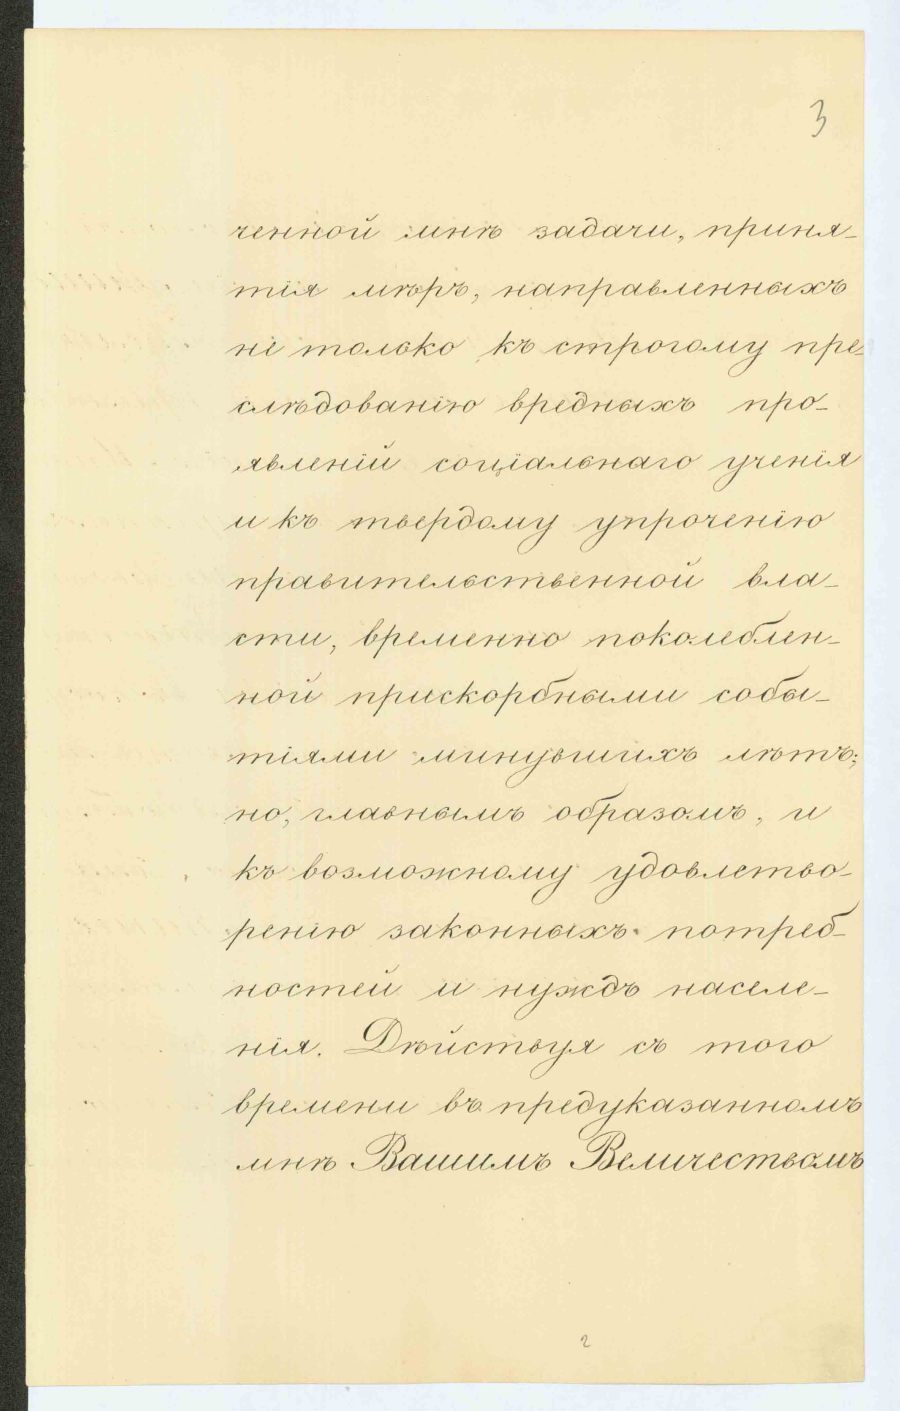 3
ченной мнѣ задачи, приня-
тія мѣръ, направленныхъ
не только къ строгому пре-
слѣдованію вредныхъ про-
явленій соціальнаго ученія
и къ твердому упроченію
правительственной вла-
сти, временно поколеблен-
ной прискорбными собы-
тіями минувшихъ лѣтъ;
но, главнымъ образомъ, и
къ возможному удовлетво-
ренію законныхъ потреб-
ностей и нуждъ населе-
нія. Дѣйствуя съ того
времени въ предуказанномъ
мнѣ Вашимъ Величествомъ
2